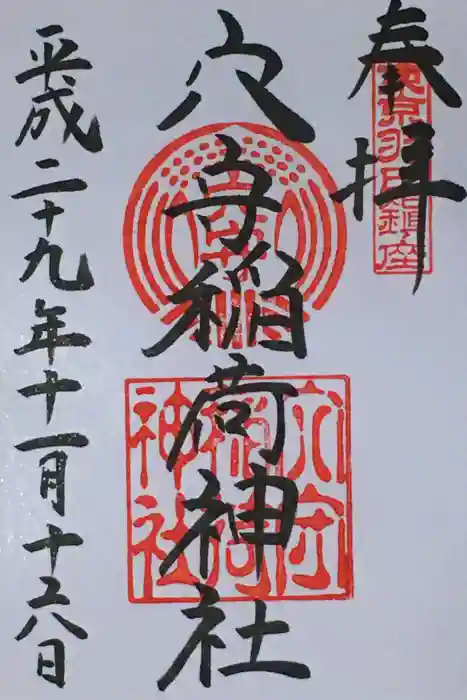 奉拝
東京羽田鎮座
穴守稲荷神社
穴守
稲荷
神社
平成二十九年十一月十六日